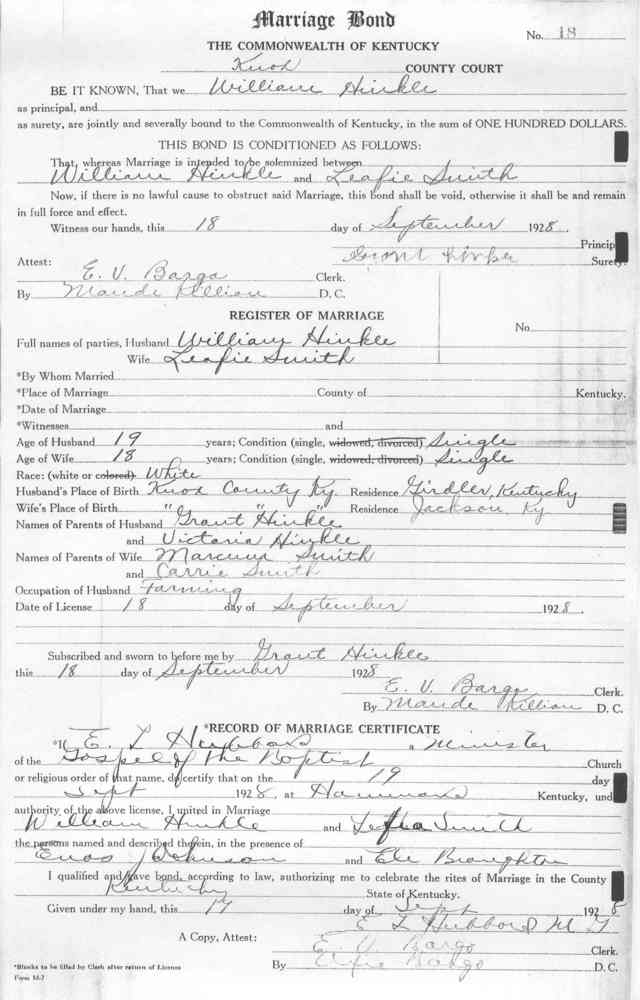 Marriage Bond
No. 18
THE COMMONWEALTH OF KENTUCKY
Knox COUNTY COURT
BE IT KNOWN, That we William Hinkle
as principal, and
as surety, are jointly and severally bound to the Commonwealth of Kentucky, in the sum of ONE HUNDRED DOLLARS.
THIS BOND IS CONDITIONED AS FOLLOWS:
That, whereas Marriage is intended to be solemnized between
William Hinkle and Leafie Smith
Now, if there is no lawful cause to obstruct said Marriage, this bond shall be void, otherwise it shall be and remain
in full force and effect.
Witness our hands, this 18 day of September 1928.
Princip
Grant Hinkle Suret
Attest:
E. V. Bargo Clerk.
By Maude Killian D. C.
REGISTER OF MARRIAGE
No.
Full names of parties, Husband William Hinkle
Wife Leafie Smith
*By Whom Married
*Place of Marriage County of Kentucky.
*Date of Marriage
*Witnesses and
Age of Husband 19 years; Condition (single, widowed, divorced) Single
Age of Wife 18 years; Condition (single, widowed, divorced) Single
Race: (white or colored) White
Husband's Place of Birth Knox County Ky. Residence Girdler, Kentucky
Wife's Place of Birth " " " Residence Jackson, Ky
Names of Parents of Husband Grant Hinkle
and Victoria Hinkle
Names of Parents of Wife Smith
and Carrie Smith
Occupation of Husband Farming
Date of License 18 day of September 1928.
Subscribed and sworn to before me by Grant Hinkle
this 18 day of September 1928
E. V. Bargo Clerk.
By Maude Killian D. C.
*RECORD OF MARRIAGE CERTIFICATE
*I, E. L. Hubbard a Minister
of the Gospel of the Baptist Church
or religious order of that name, do certify that on the 19 day
Sept 1928, at Hammond Kentucky, und
authority of the above license, I united in Marriage
William Hinkle and Smith
the persons named and described therein, in the presence of
Enos Johnson and Ele Broughton
I qualified and gave bond, according to law, authorizing me to celebrate the rites of Marriage in the County
Kentucky State of Kentucky.
Given under my hand, this 19 day of Sept 1928
E L Hubbard M G
A Copy, Attest:
E. V. Bargo Clerk.
By Effie Bargo D. C.
*Blanks to be filled by Clerk after return of License
Form M-7